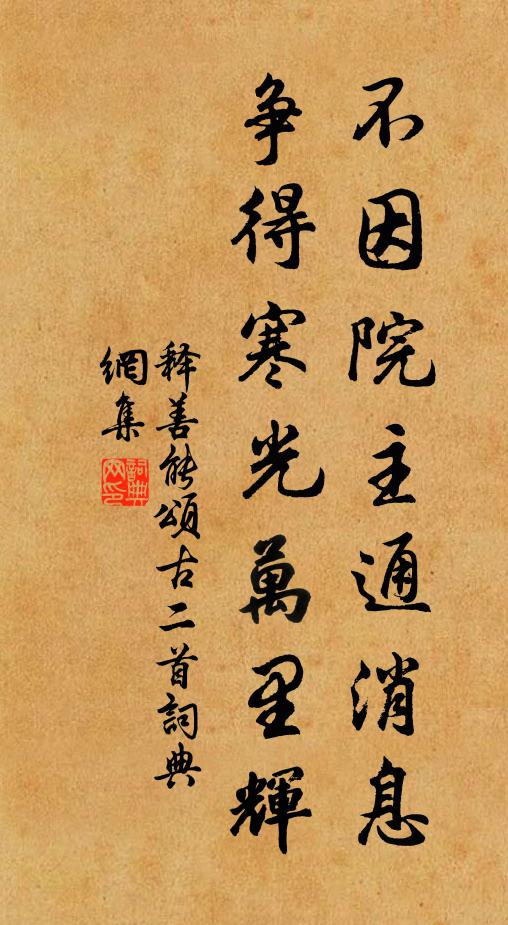 不因院主通消息
争得寒光萬里輝
釋善能頌古二首詞典
網集
詞典
网印